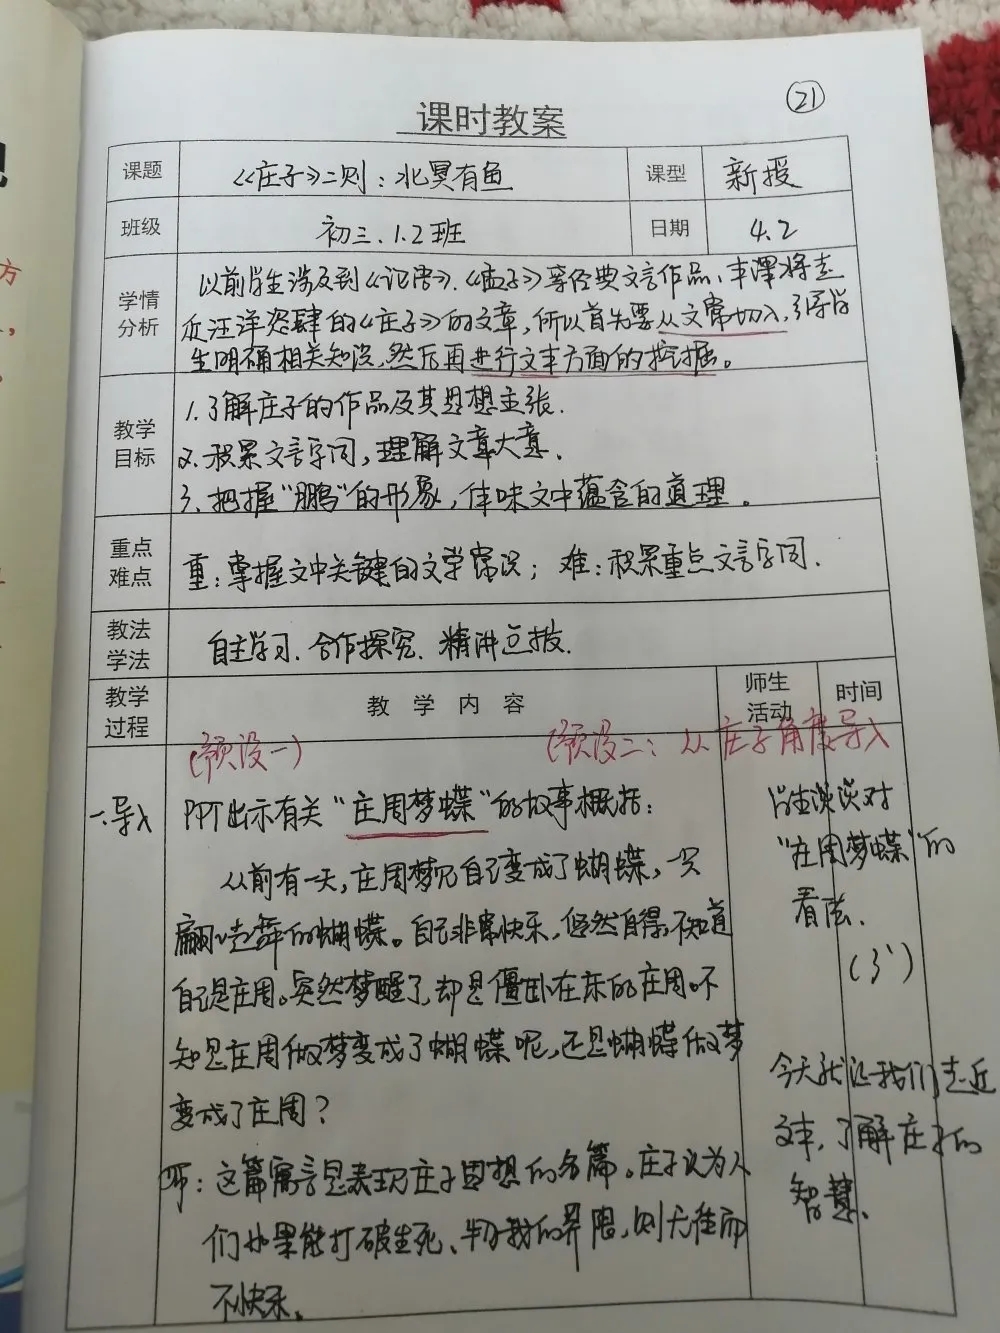 21
课时教案
课题 《庄子》二则:北冥有鱼 课型 新授
班级 初三.1.2班 日期 4.2
学情分析 以前学生涉及到《论语》.《孟子》等经典文言作品,本课将走
近汪洋恣肆的《庄子》的文章,所以首先要从文常切入,引导学
生明确相关知识,然后再进行文本方面的挖掘。
教学目标 1.了解庄子的作品及其思想主张.
2.积累文言字词,理解文章大意.
3.把握"鹏"的形象,体味文中蕴含的道理。
重点难点 重:掌握文中关键的文学常识;难:积累重点文言字词.
教法学法 自主学习.合作探究.精讲点拨.
教学过程 教学内容 师生活动 时间
(预设一) (预设二:从庄子角度导入
一.导入 PPT出示有关"庄周梦蝶"的故事概括:
从前有一天,庄周梦见自己变成了蝴蝶,一只
翩翩起舞的蝴蝶。自己非常快乐,悠然自得,不知道
自己是庄周。突然梦醒了,却是僵卧在床的庄周。不
知是庄周做梦变成了蝴蝶呢,还是蝴蝶做梦
变成了庄周?
师:这篇寓言是表现庄子思想的名篇。庄子认为人
们如果能打破生死、物我的界限,则无往而
不快乐。
学生谈谈对
"庄周梦蝶"的
看法.
(3')
今天就让我们走近
文本,了解庄子的
智慧.